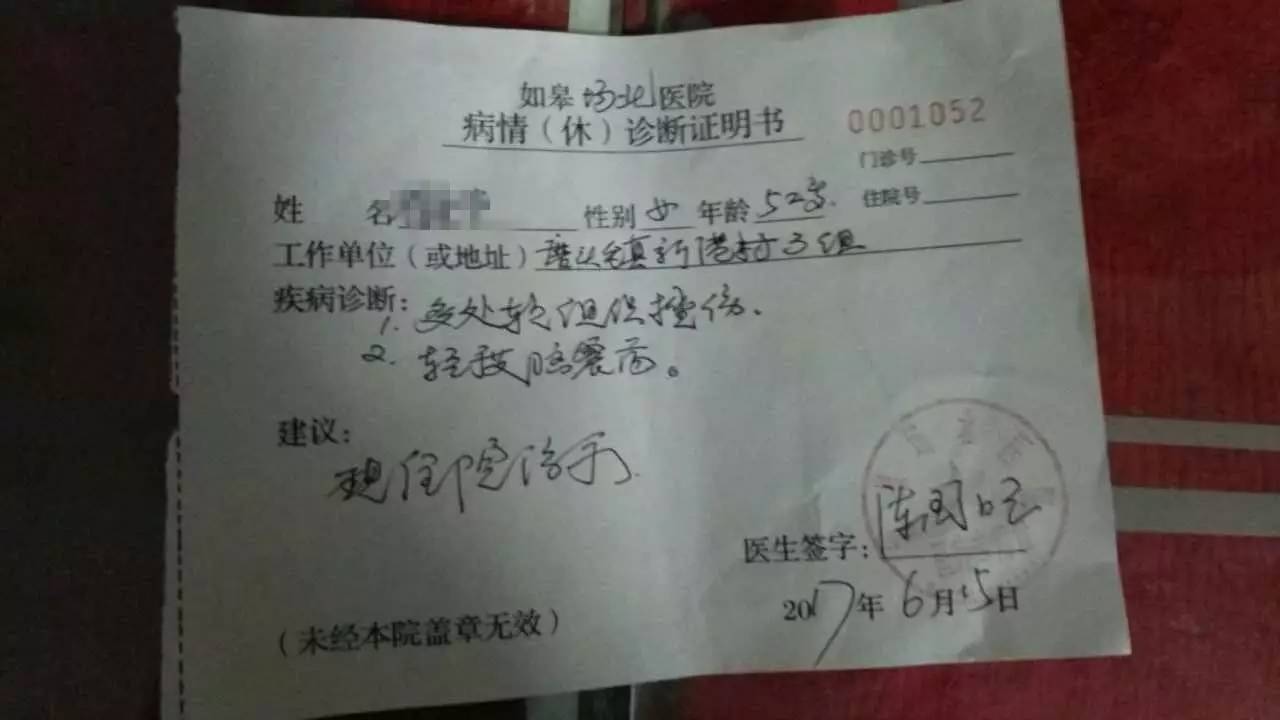 如皋场北医院
病情（休）诊断证明书
0001052
门诊号
住院号
姓 名 性别 女 年龄 52岁.
工作单位（或地址）磨头镇新港村3组
疾病诊断：
1. 多处软组织挫伤.
2. 轻度脑震荡。
建议：
现住院治疗.
医生签字：陈国
2017年6月15日
（未经本院盖章无效）